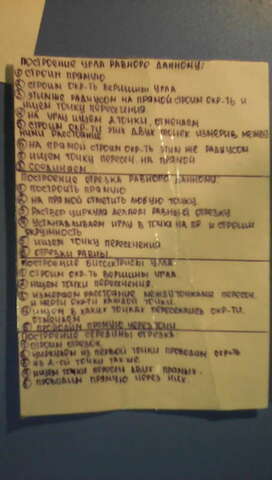 ПОСТРОЕНИЕ УГЛА РАВНОГО ДАННОМУ:
СТРОИМ ПРЯМУЮ
СТРОИМ ОКР-ТЬ ВЕРШИНЫ УГЛА
ЭТИМЖЕ РАДИУСОМ НА ПРЯМОЙ СТРОИМ ОКР-ТЬ И
ИЩЕМ ТОЧКУ ПЕРЕСЕЧЕНИЯ.
НА УГЛУ ИЩЕМ 2 ТОЧКИ, ОТМЕЧАЕМ
СТРОИМ ОКР-ТИ ЭТИХ ДВУХ ТОЧЕК ИЗМЕРИВ МЕЖДУ
НИМИ РАССТОЯНИЕ
НА ПРЯМОЙ СТРОИМ ОКР-ТЬ ЭТИМ ЖЕ РАДИУСОМ
ИЩЕМ ТОЧКУ ПЕРЕСЕЧ. НА ПРЯМОЙ
СОЕДИНЯЕМ
ПОСТРОЕНИЕ ОТРЕЗКА РАВНОГО ДАННОМУ:
ПОСТРОИТЬ ПРЯМУЮ
НА ПРЯМОЙ ОТМЕТИТЬ ЛЮБУЮ ТОЧКУ.
РАСТВОР ЦИРКУЛЯ ДЕЛАЕМ РАВНЫЙ ОТРЕЗКУ
УСТАНАВЛИВАЕМ ИГЛУ В ТОЧКУ НА ПР. И СТРОИМ
ОКРУЖНОСТЬ
ИЩЕМ ТОЧКУ ПЕРЕСЕЧЕНИЯ
ОТРЕЗКИ РАВНЫ.
ПОСТРОЕНИЕ БИССЕКТРИСЫ УГЛА:
СТРОИМ ОКР-ТЬ ВЕРШИНЫ УГЛА.
ИЩЕМ ТОЧКИ ПЕРЕСЕЧЕНИЯ.
ИЗМЕРЯЕМ РАССТОЯНИЕ МЕЖДУ ТОЧКАМИ ПЕРЕСЕЧ.
И ЧЕРТИ ОКР-ТИ КАЖДОЙ ТОЧКИ.
ИЩЕМ В КАКИХ ТОЧКАХ ПЕРЕСЕКЛИСЬ ОКР-ТИ.
ОТМЕЧАЕМ
ПРОВОДИМ ПРЯМУЮ ЧЕРЕЗ
ПОСТРОЕНИЕ СЕРЕДИНЫ ОТРЕЗКА:
СТРОИМ ОТРЕЗОК
ЦИРКУЛЕМ ИЗ ПЕРВОЙ ТОЧКИ ПРОВОДИМ ОКР-ТЬ
ИЗ 2-ОЙ ТОЧКИ ТАК ЖЕ
ИЩЕМ ТОЧКИ ПЕРЕСЕЧ ДВУХ ПРЯМЫХ.
ПРОВОДИМ ПРЯМУЮ ЧЕРЕЗ НИХ.